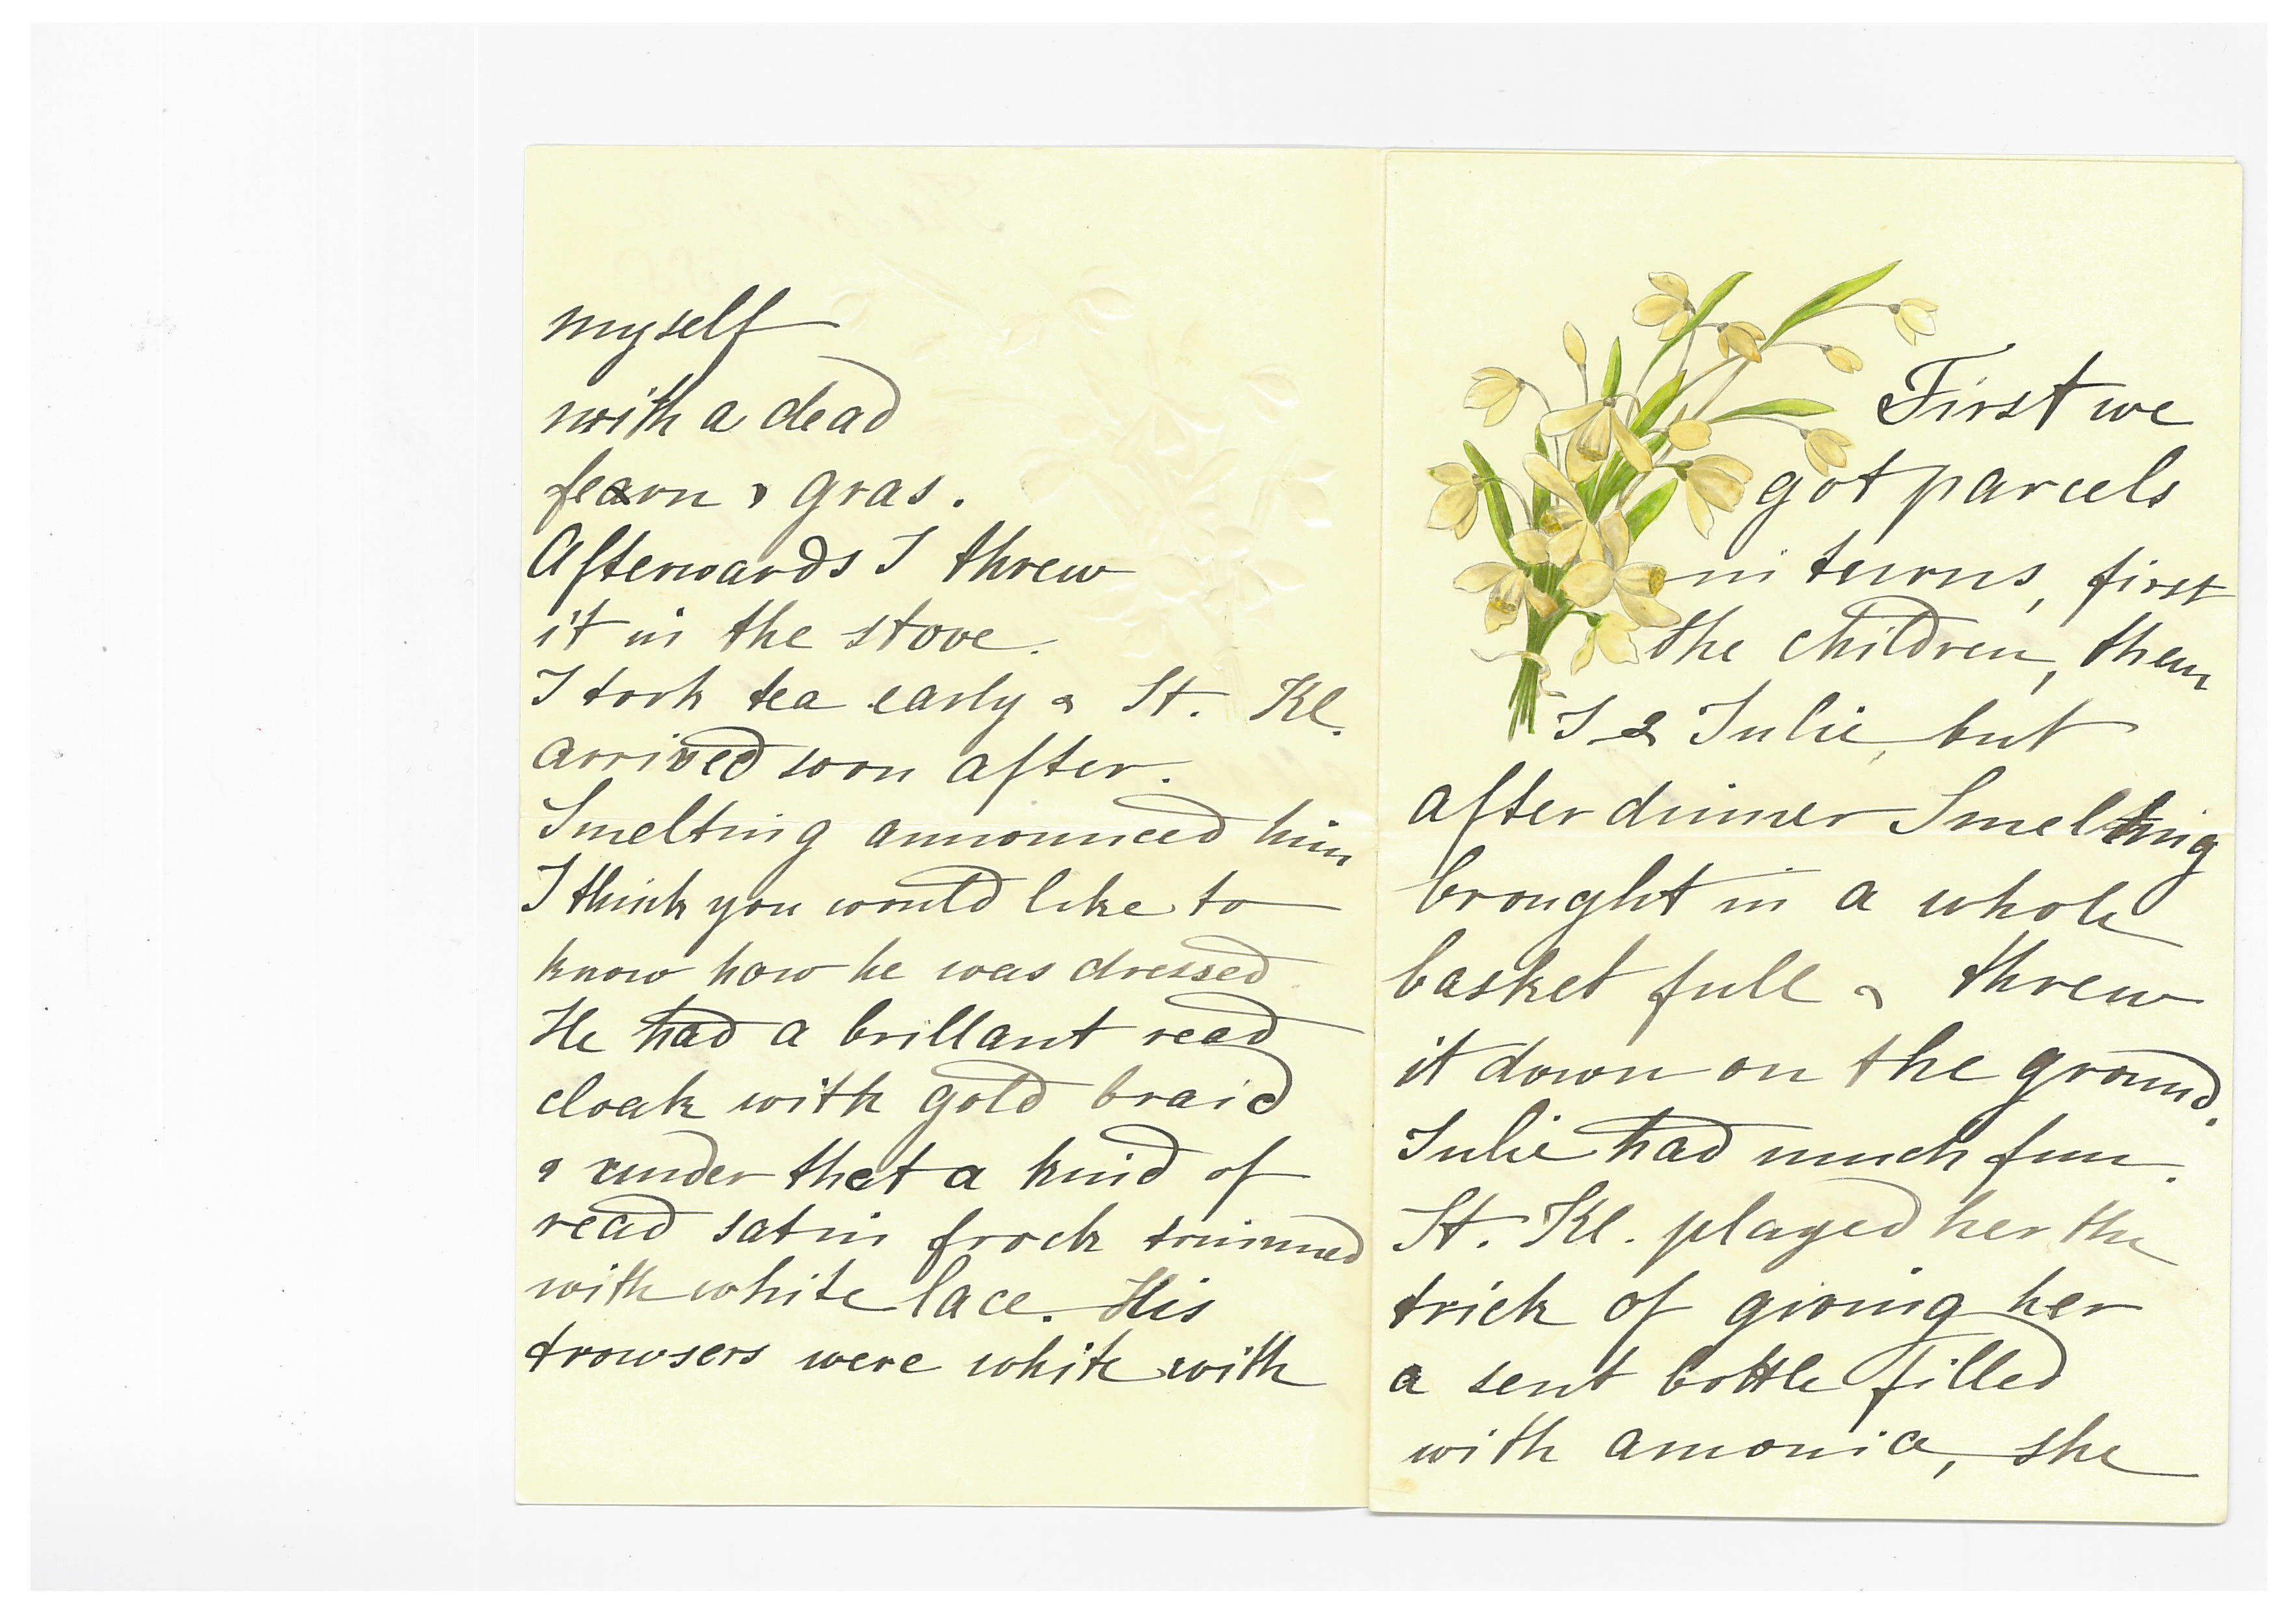 myself
with a dead
fearn & gras.
Afterwards I threw
it in the stove.
I took tea early & St. Kl.
arrived soon after.
Smelting announced him
I think you would like to
know how he was dressed
He had a brillant read
cloak with gold braid
& under that a kind of
read satin frock trimmed
with white lace. His
trowsers were white with
First we
got parcels
in turns, first
the children, then
I & Julie, but
after dinner Smelting
brought in a whole
basket full & threw
it down on the ground.
Julie had much fun.
St. Kl. played her the
trick of giving her
a sent bottle filled
with amonia, she